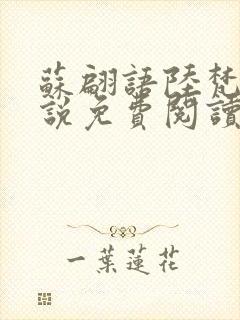 蘇翩語陸梵
說免費閱讀
一葉蓮花